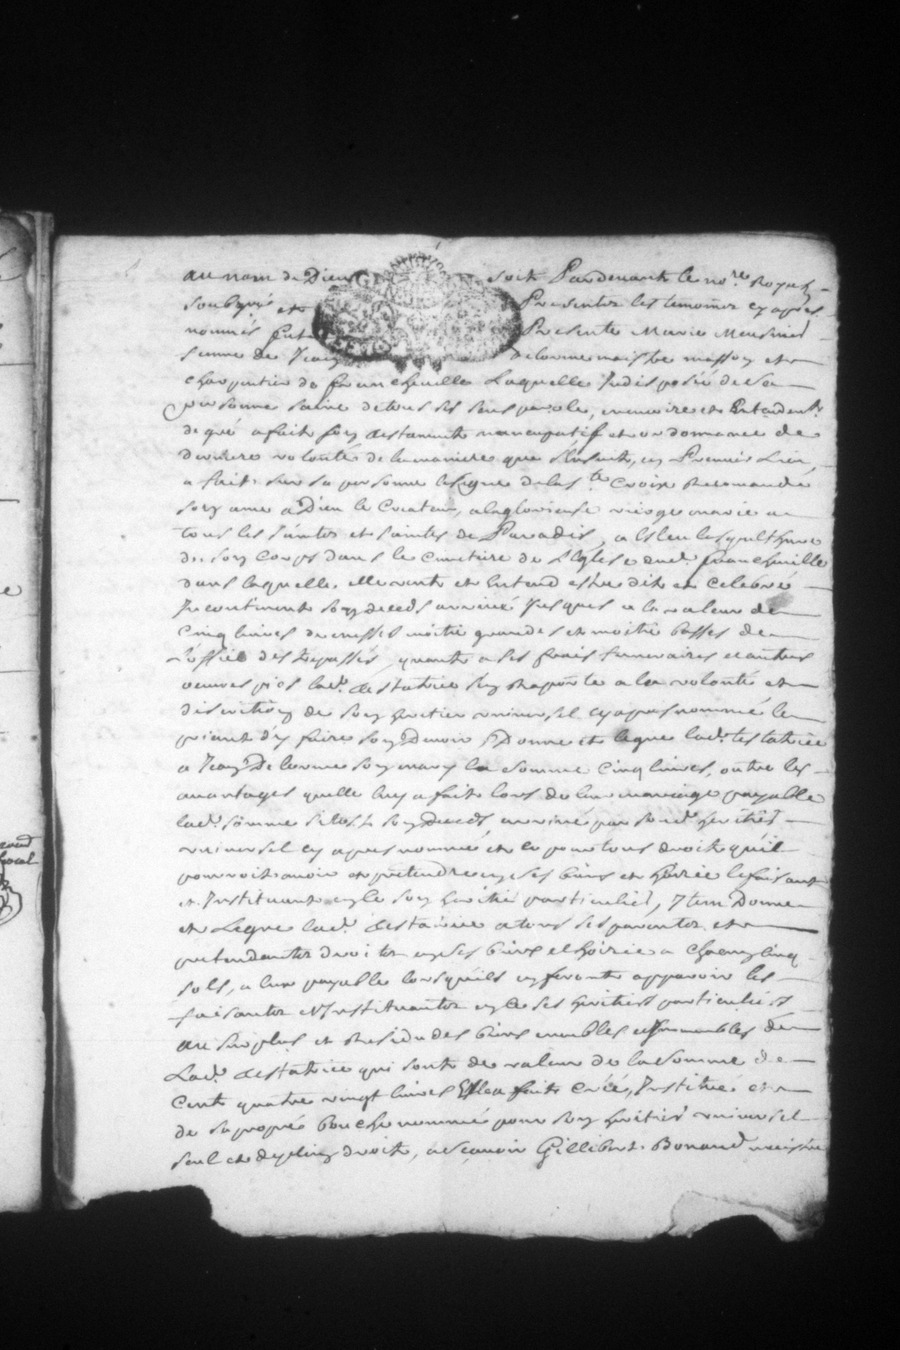 au nom de Dieu soit Pardevant le nore Royal
soubzné et Presentes les temoins cy apres
nommés fut Presente Marie Meusnier
femme de Jean delorme maistre masson et
charpentier de francheville Laquelle Indisposée de sa
personne saine de tous ses sens parole, memoire et Entendemt
de gré a fait son testament noncupatif et ordonnance de
derniere volonté de la maniere que s'ensuit, en Premier Lieu,
a fait sur sa personne le signe de la ste Croix Recomandé
son ame a Dieu le Createur, a la glorieuse vierge marie a
tous les saints et saintes de Paradis, a Esleu le sepulthure
de son corps dans le cimetiere de L'Eglise dud. francheville
dans laquelle elle veut et Entend estre dit et celebré
Incontinent son deceds arrivé jusques a la valeur de
cinq livres de messes moitié grandes et moitié basses de
L'office des trepassés, quant a ses frais funeraires et autres
oeuvres pies lad. testatrice s'en raporte a la volonté et
discretion de son heritier universel cy apres nommé le
priant d'y faire son Devoir, Donne et legue lad. testatrice
a Jean Delorme son mary la somme cinq livres, outre les
avantages quelle luy a fait lors de leur mariage payable
lad. somme sitost son Deceds, arrivé par sond. heritier
universel cy apres nommé et ce pour tous droits qu'il
pourroit avoir et pretendre en ses biens et hoirie le faisant
et Instituant en ce son heritier particulier, Item Donne
et Legue lad. testatrice a tous ses parents et
pretendants droits en ses biens et hoirie a chacun cinq
sols, a eux payable lorsqu'ils en feront apparoir les
faisants et Instituants en ce ses heritiers particuliers
au surplus et Residu des biens meubles et Immeubles de
Lad. testatrice qui sont de valeur de la somme de
Cent quatre vingt livres Elle a fait, créé, Institué et
de sa propre bouche nommé pour son heritier universel
seul et de plein droit, a scavoir Gillibert Bonnand